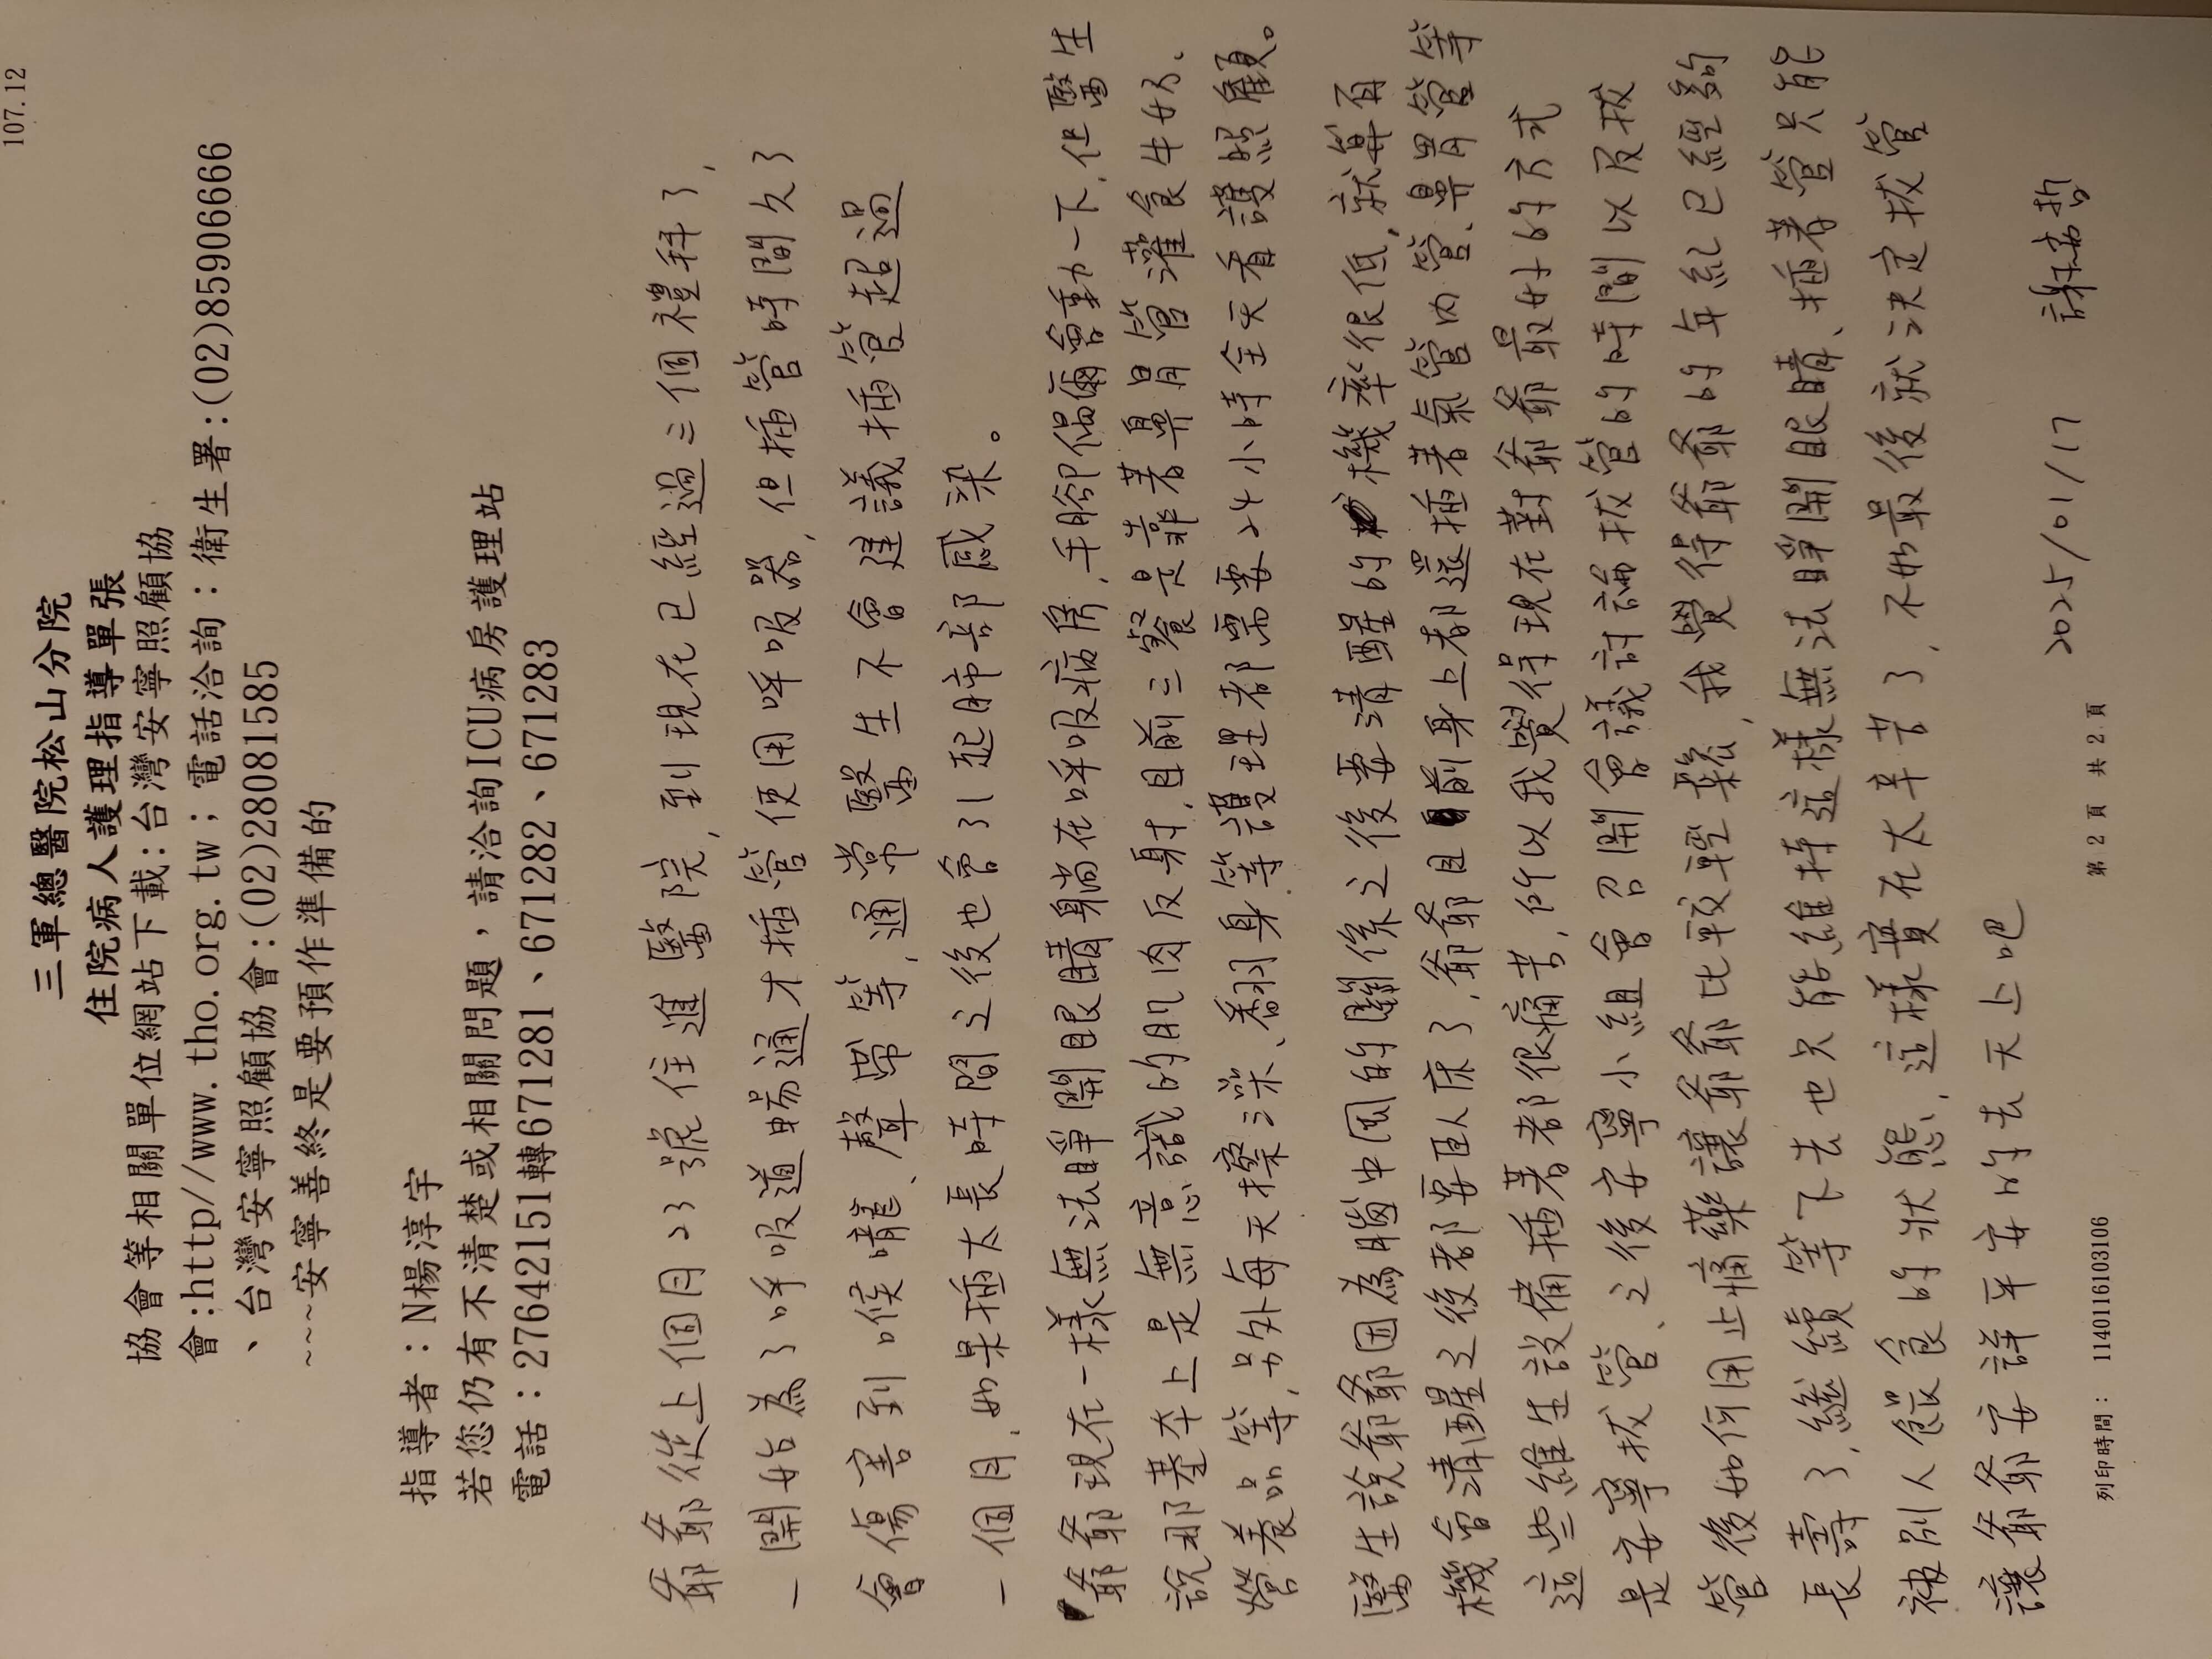 107.12
三軍總醫院松山分院
住院病人護理指導單張
協會等相關單位網站下載:台灣安寧照顧協
會:http//www.tho.org.tw；電話洽詢：衛生署:(02)85906666
、台灣安寧照顧協會:(02)28081585
~~~安寧善終是要預作準備的
指導者：N楊淳宇
若您仍有不清楚或相關問題，請洽詢ICU病房護理站
電話：27642151轉671281、671282、671283
爺爺從上個月23號住進醫院,到現在已經過三個禮拜了,
一開始為了呼吸道暢通才插管使用呼吸器,但插管時間久了
會傷害到喉嚨、聲帶等,通常醫生不會建議插管超過
一個月,如果插太長時間之後也會引起肺部感染。
爺爺現在一樣無法睜開眼睛躺在呼吸病房,手腳偶爾會動一下,但醫生
說那基本上是無意識的肌肉反射,目前三餐是靠著鼻胃管灌食牛奶、
營養品等,另外每天擦澡、翻身等護理都需要24小時全天看護照顧。
醫生說爺爺因為腦中風的關係之後要清醒的機率很低,就算有
機會清醒之後都要臥床了,爺爺目前身上都還插著氣管內管、鼻胃管等
這些維生設備插著都很痛苦,所以我覺得現在對爺爺最好的方式
是安寧拔管、之後安寧小組會召開會議討論拔管的時間以及拔
管後如何用止痛藥讓爺爺比較輕鬆,我覺得爺爺的年紀已經夠
長壽了,繼續等下去也只能維持這樣無法睜開眼睛、插著管只能
被別人餵食的狀態,這樣實在太辛苦了,不如最後就決定拔管
讓爺爺安詳平安的去天上吧
2025/01/17
列印時間： 1140116103106
第 2 頁 共 2 頁